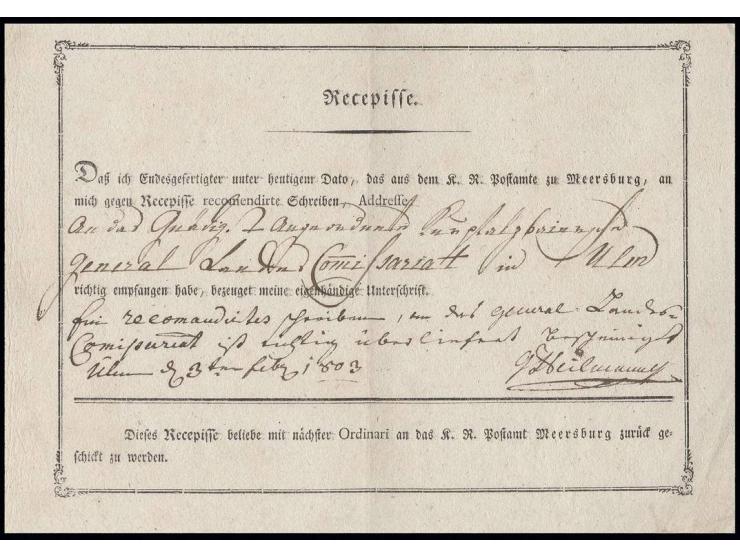 Recepisse.
Daß ich Endesgefertigter unter heutigem Dato, das aus dem K. R. Postamte zu Meersburg, an
mich gegen Recepisse recomendirte Schreiben, Addresse
An das Gnädig. Angeordnete Kurpfalzbairische
General Landes Comissariatt in Ulm
richtig empfangen habe, bezeuget meine eigenhändige Unterschrift.
Ein recomandirtes schreiben, an das general Landes-
Comissariat ist richtig überliefert bescheinigt
Ulm d 3ten feb 1803 Heilmann
Dieses Recepisse beliebe mit nächster Ordinari an das K. R. Postamt Meersburg zurück ge-
schickt zu werden.